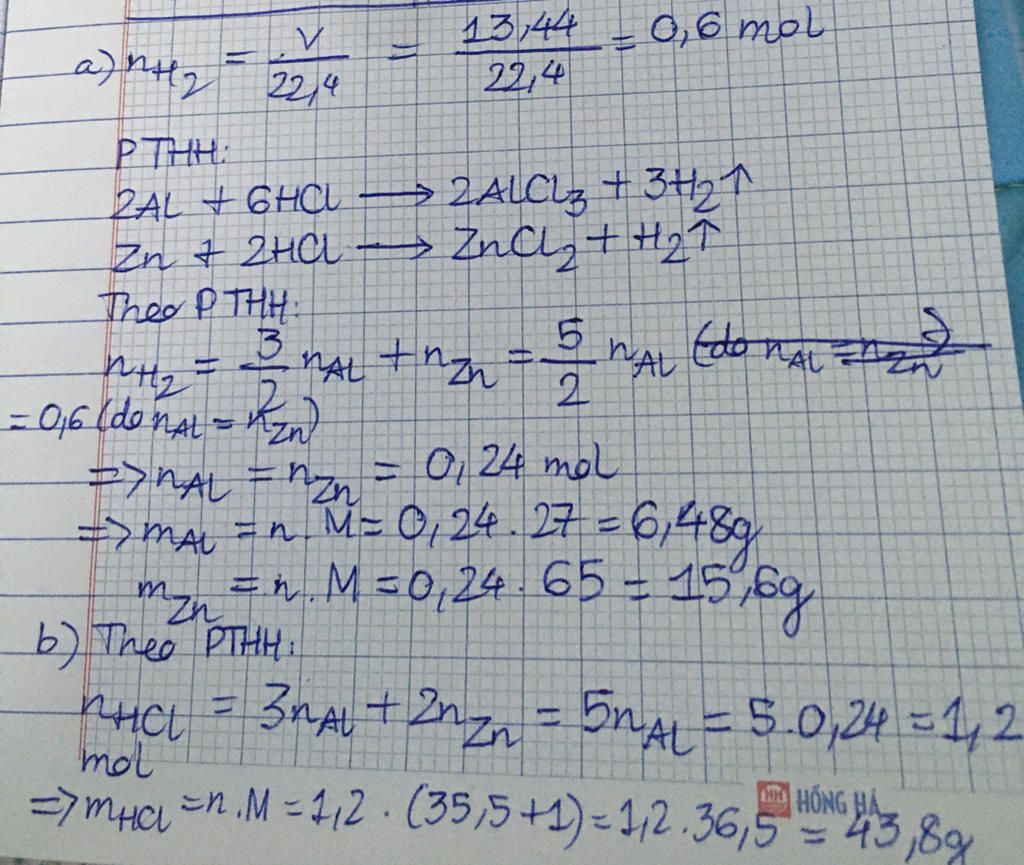 a) nH2 = V/22,4 = 13,44/22,4 = 0,6 mol
PTHH:
2Al + 6HCl → 2AlCl3 + 3H2↑
Zn + 2HCl → ZnCl2 + H2↑
Theo PTHH:
nH2 = 3/2 nAl + nZn = 5/2 nAl (do nAl = nZn)
= 0,6 (do nAl = nZn)
=> nAl = nZn = 0,24 mol
=> mAl = n.M = 0,24 . 27 = 6,48g
mZn = n.M = 0,24 . 65 = 15,6g
b) Theo PTHH:
nHCl = 3nAl + 2nZn = 5nAl = 5.0,24 = 1,2
mol
=> mHCl = n.M = 1,2 . (35,5+1) = 1,2 . 36,5 = 43,8g
HH HỒNG HÀ